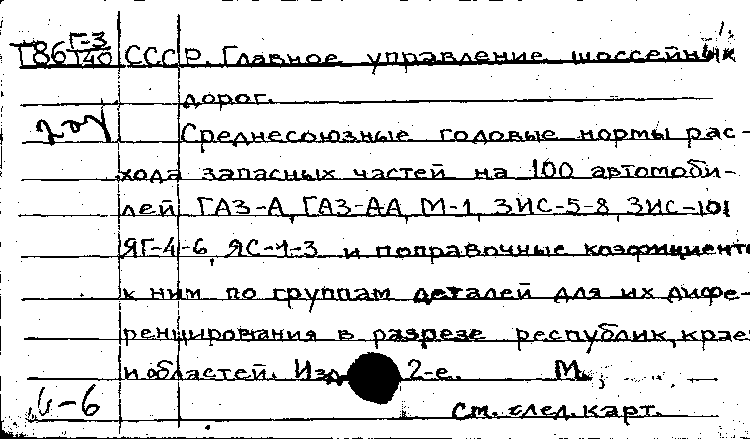 Т86 Г-3/140 СССР. Главное управление шоссейных
дорог.
Среднесоюзные годовые нормы рас-
хода запасных частей на 100 автомоби-
лей ГАЗ-А, ГАЗ-АА, М-1, ЗИС-5-8, ЗИС-101
ЯГ-4-6, ЯС-1-3 и поправочные коэфициенты
к ним по группам деталей для их дифе-
ренцирования в разрезе республик, крае
и областей. Изд. 2-е. М.,
см. след. карт.